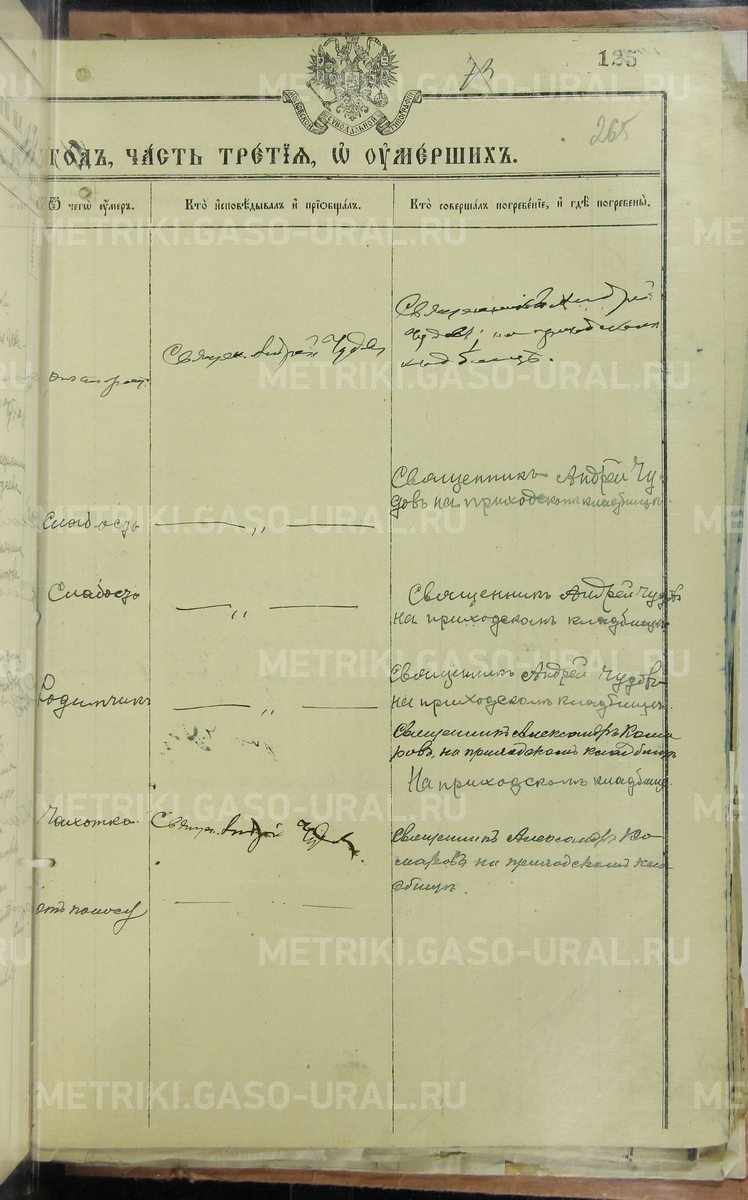 125
73
265
МОСКОВСКОЙ СѴНОДАЛЬНОЙ ТИПОГРАФІИ
ГОДЪ, ЧАСТЬ ТРЕТІѦ, Ѡ ОУМЕРШИХЪ.
Ѿ чегѡ оумеръ.
Кто исповѣдывалъ и пріобщалъ.
Кто совершалъ погребеніе, и гдѣ погребены.
Священ. Андрей Чудов
Священникъ Андрей
Чудовъ на приходскомъ
кладбищѣ.
Слабость
— „ —
Священникъ Андрей Чу-
довъ на приходскомъ кладбищѣ
Слабость
— „ —
Священникъ Андрей Чудовъ
на приходскомъ кладбищѣ
Родимчикъ
— „ —
Священникъ Андрей Чудовъ
на приходскомъ кладбищѣ.
Священникъ Александръ Кома
ровъ, на приходскомъ кладбищѣ
На приходскомъ кладбищ
Чахотка.
Священ. Андрей Чудов.
Священникъ Александръ Ко-
маровъ на приходскомъ кла
дбищѣ.
отъ поносу
— —
METRIKI.GASO-URAL.RU